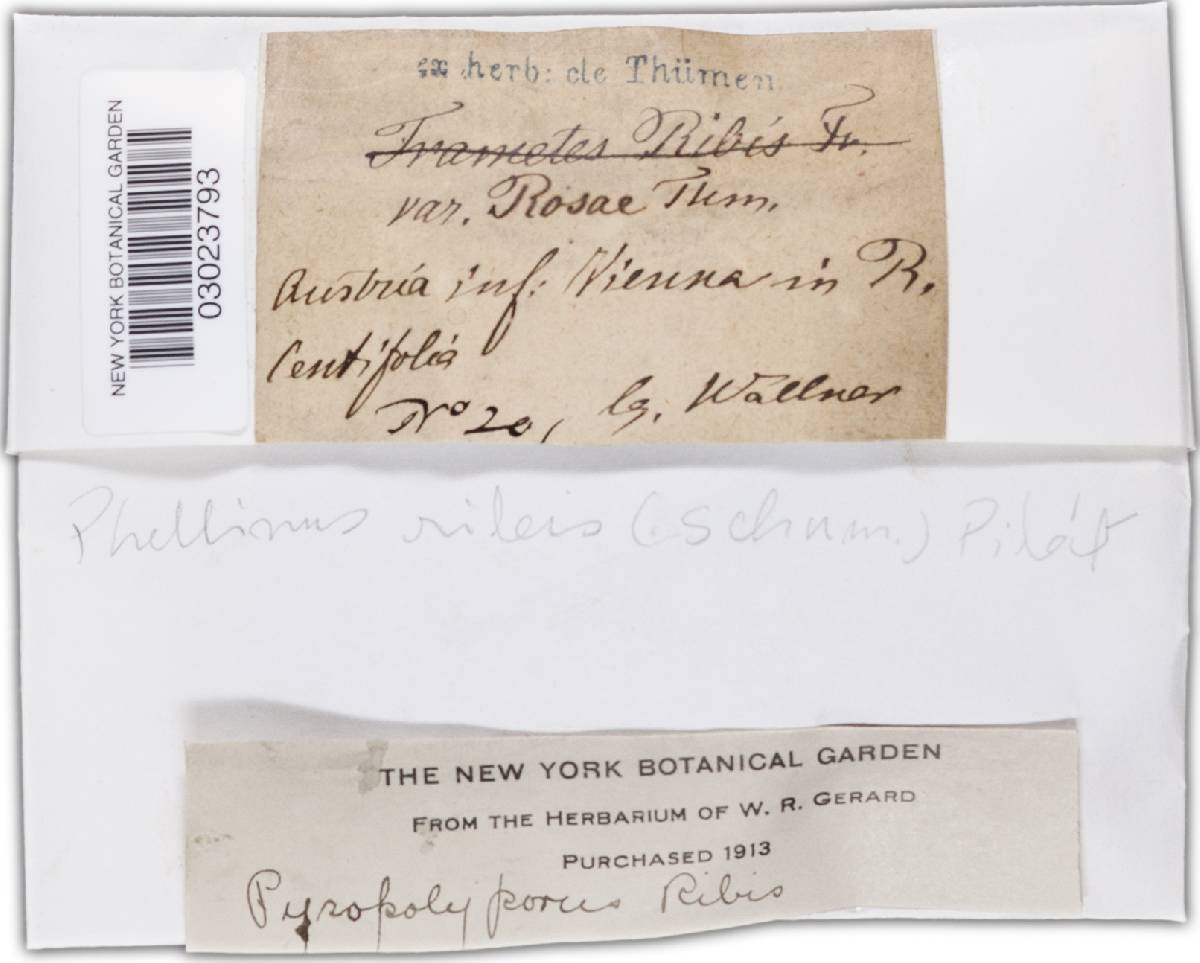 NEW YORK BOTANICAL GARDEN
03023793
ex herb: de Thümen.
Trametes Ribis Fr.
var. Rosae Thm.
Austria inf: Vienna in R.
Centifolia
No 20, lg. Wallner
Phellinus ribis (Schum.) Pilát
THE NEW YORK BOTANICAL GARDEN
FROM THE HERBARIUM OF W. R. GERARD
PURCHASED 1913
Pyropolyporus Ribis